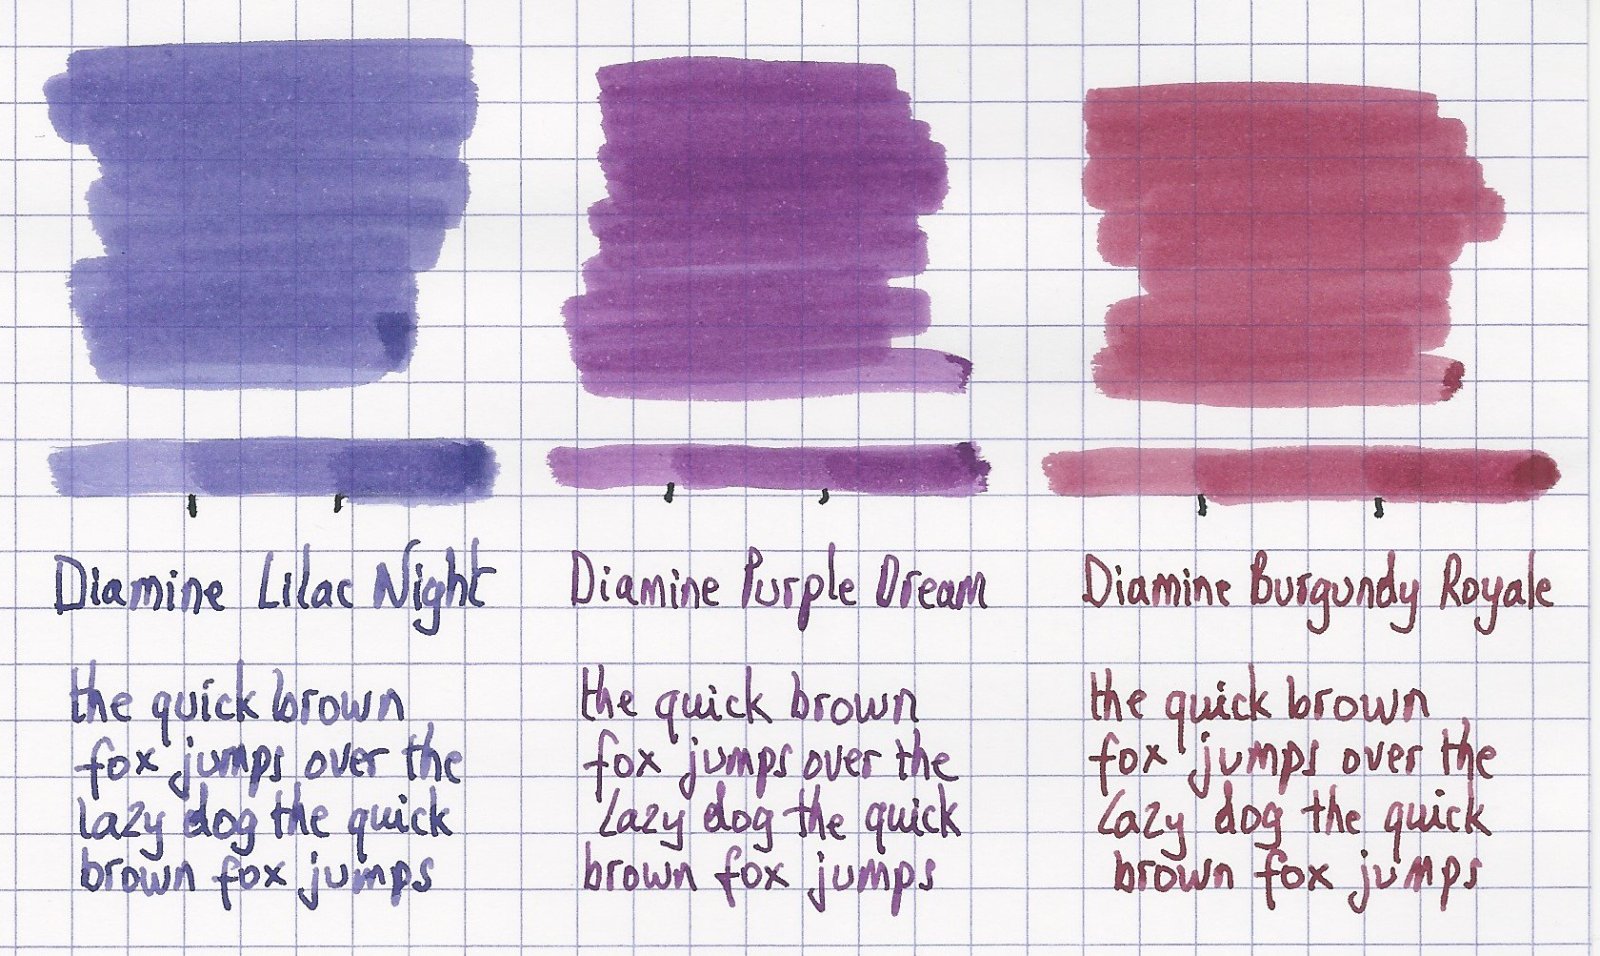 Diamine Lilac Night
the quick brown
fox jumps over the
lazy dog the quick
brown fox jumps
Diamine Purple Dream
the quick brown
fox jumps over the
Lazy dog the quick
brown fox jumps
Diamine Burgundy Royale
the quick brown
fox jumps over the
Lazy dog the quick
brown fox jumps